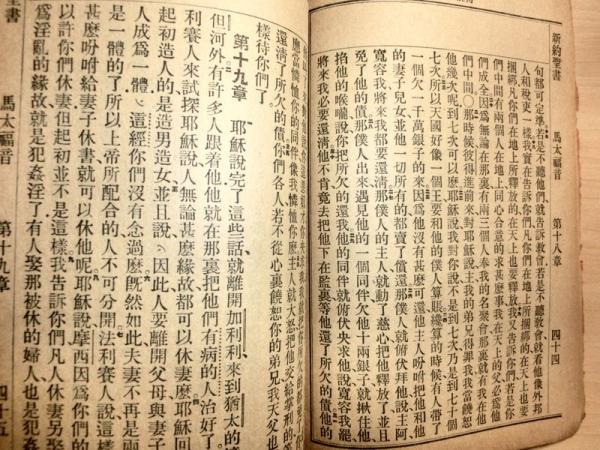 新約聖書 馬太福音 第十八章 四十四
句都可定準若是不聽他們就告訴教會若是不聽教會就看他像外邦
人和稅吏一樣我實在告訴你們凡你們在地上所捆綁的在天上也要
捆綁凡你們在地上所釋放的在天上也要釋放我又告訴你們若是你
們中間有兩個人在地上同心合意的求甚麼事我在天上的父必爲他
們成全因爲無論在那裏有兩三個人奉我的名聚會那裏就有我在他
們中間〇那時候彼得進前來對耶穌說主我的弟兄得罪我我當饒恕
他幾次呢到七次可以麼耶穌說我對你說不是到七次乃是到七十個
七次所以天國好像一個王要和他的僕人算賬纔算的時候有人帶了
一個欠一千萬銀子的來因爲他沒有甚麼可還他主人吩咐把他和他
的妻子兒女並他一切所有的都賣了償還那僕人就俯伏拜他說主阿
寬容我將來我都要還清那僕人的主人就動了慈心把他釋放了並且
免了他的債那僕人出來遇見他的一個同伴欠他十兩銀子就揪住他
掐他的喉嚨說你把所欠的還我他的同伴就俯伏央求他說寬容我罷
將來我必要還清他不肯竟去把他下在監裏等他還了所欠的債他的
應當憐恤你的同伴像我憐恤你麼主人就大怒把他交給掌刑的等
還清了所欠的債你們各人若不從心裏饒恕你的弟兄我天父也
樣待你們了
第十九章 耶穌說完了這些話就離開加利利來到猶太的
但河外有許多人跟着他他就在那裏把他們有病的人治好了
利賽人來試探耶穌說人無論甚麼緣故都可以休妻麼耶穌回
起初造人的是造男造女並且說因此人要離開父母與妻子
人成爲一體這經你們沒有念過麼旣然如此夫妻不再是兩
是一體的了所以上帝所配合的人不可分開法利賽人說這樣
甚麼吩咐給妻子休書就可以休他呢耶穌說摩西因爲你們的
以許你們休妻但起初並不是這樣我告訴你們凡人休妻另娶
爲淫亂的緣故就是犯姦淫了有人娶那被休的婦人也是犯姦
聖書 馬太福音 第十九章 四十五